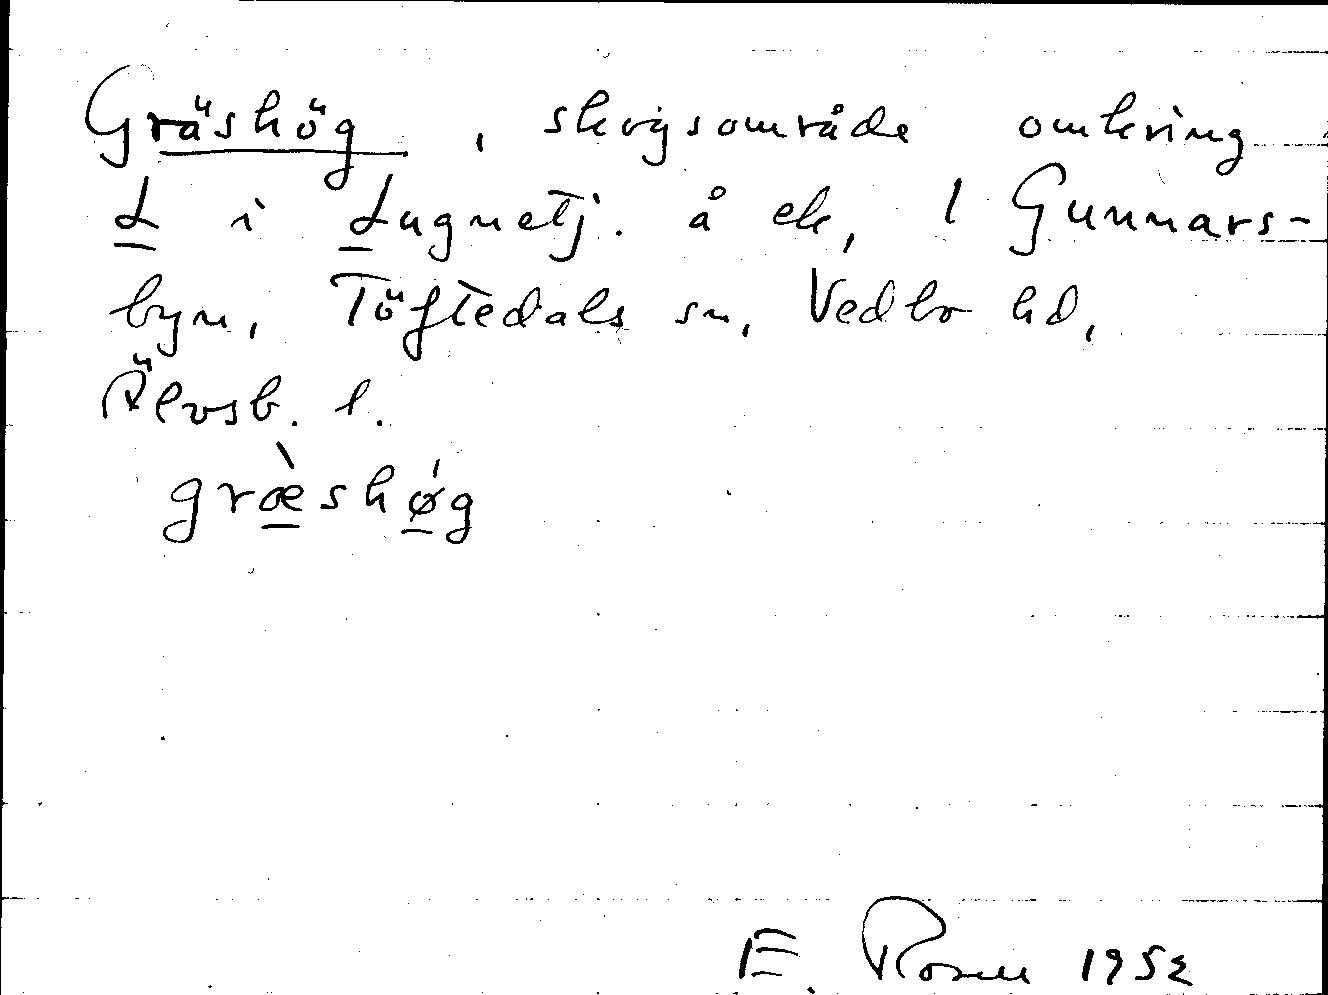 Gräshög, skogsområde omkring
L i Lugnetj. å ek, 1 Gunnars-
byn, Töftedals sn, Vedbo hd,
Älvsb. l.
græ̀shǿg
E. Rosen 1952